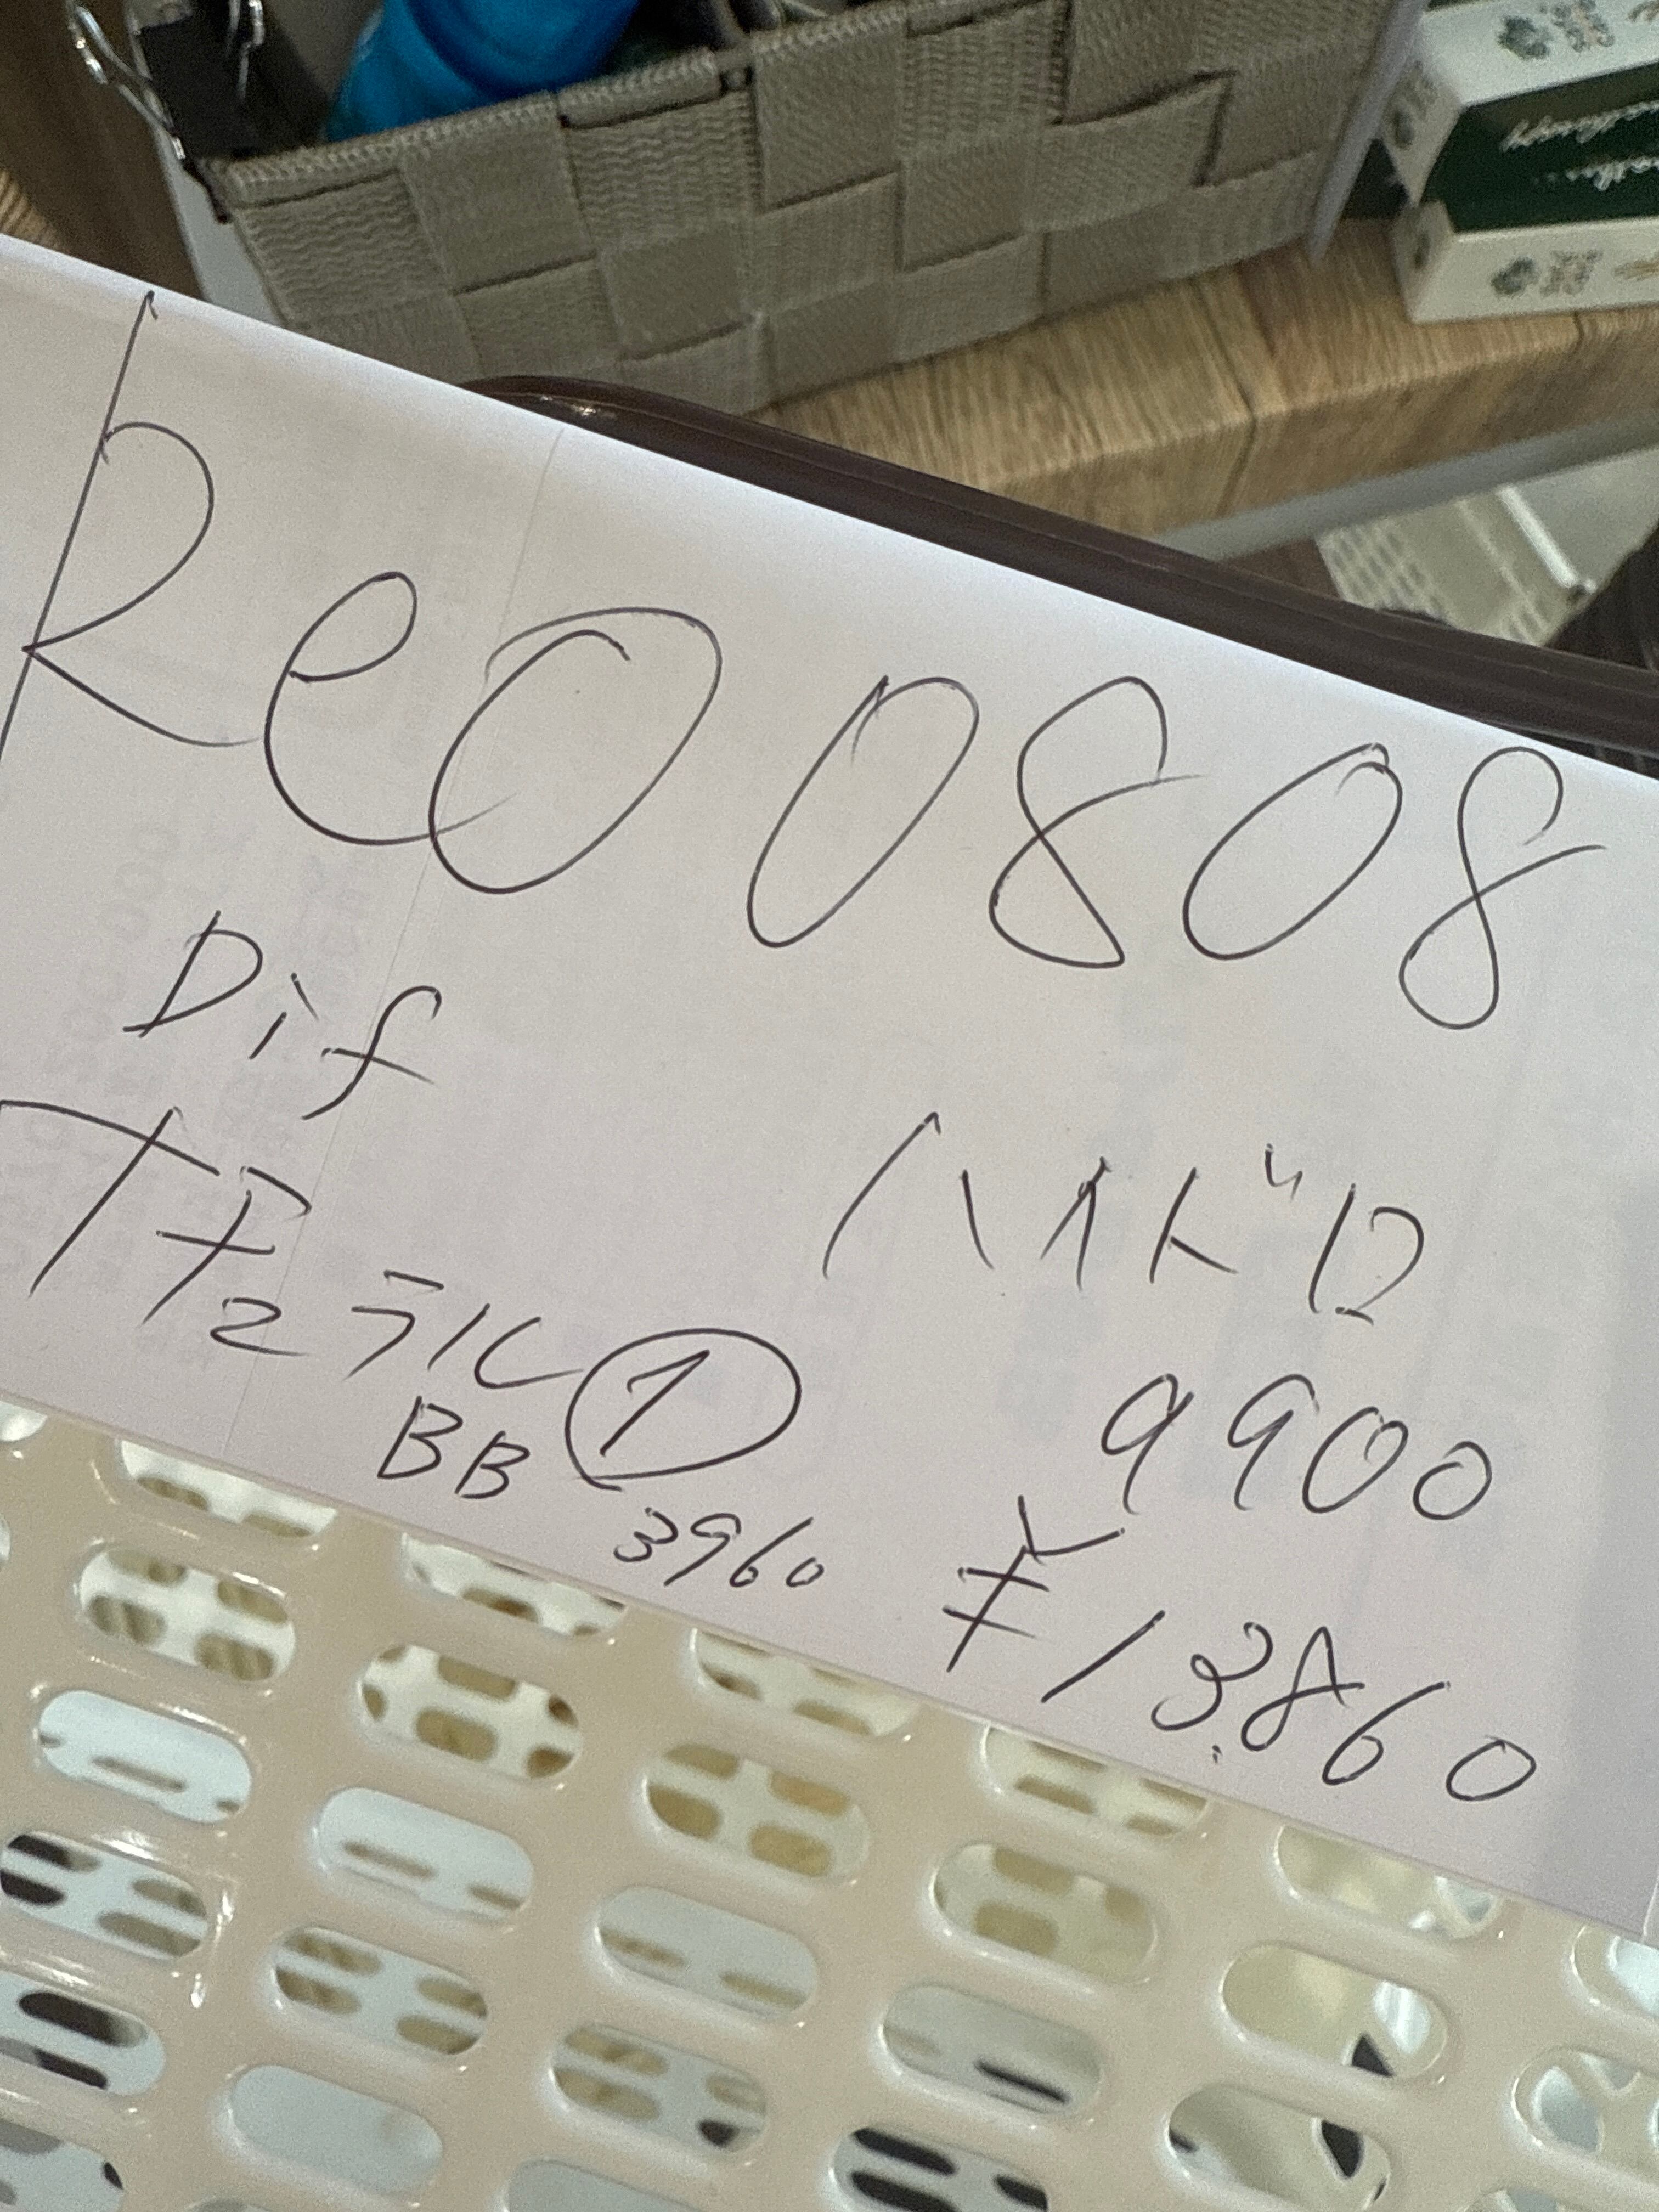 Reo 0808
Dif
ナチュラル ①
BB
3960
ハイドロ
9900
¥13860